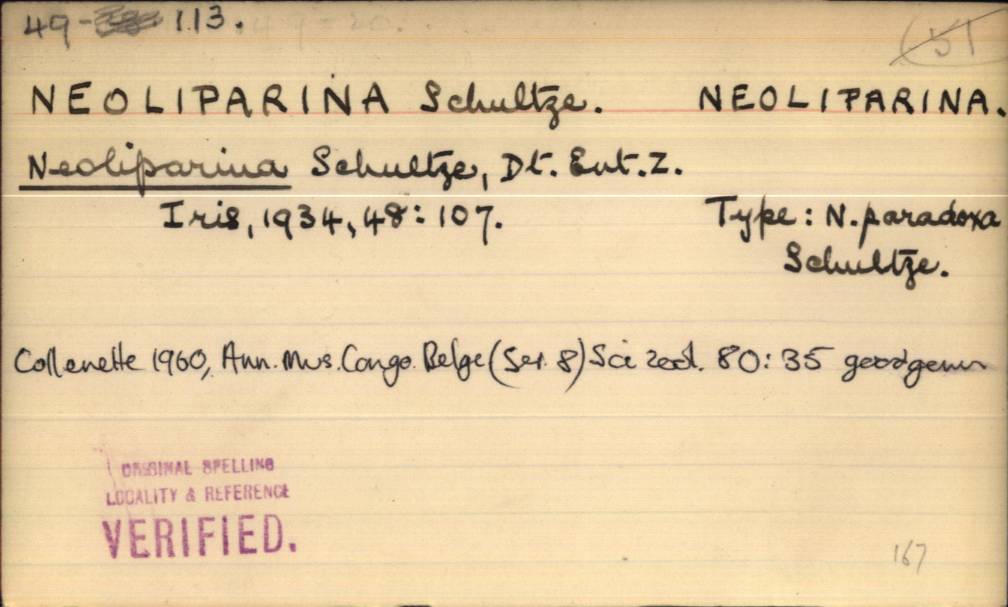 49- 113.
(51
NEOLIPARINA Schultze. NEOLIPARINA.
Neoliparina Schultze, Dt. Ent. Z.
Iris, 1934, 48: 107. Type: N. paradoxa
Schultze.
Collenette 1960, Ann. Mus. Congo. Belge (Ser. 8) Sci Zool. 80: 35 good genus
ORIGINAL SPELLING
LOCALITY & REFERENCE
VERIFIED.
167